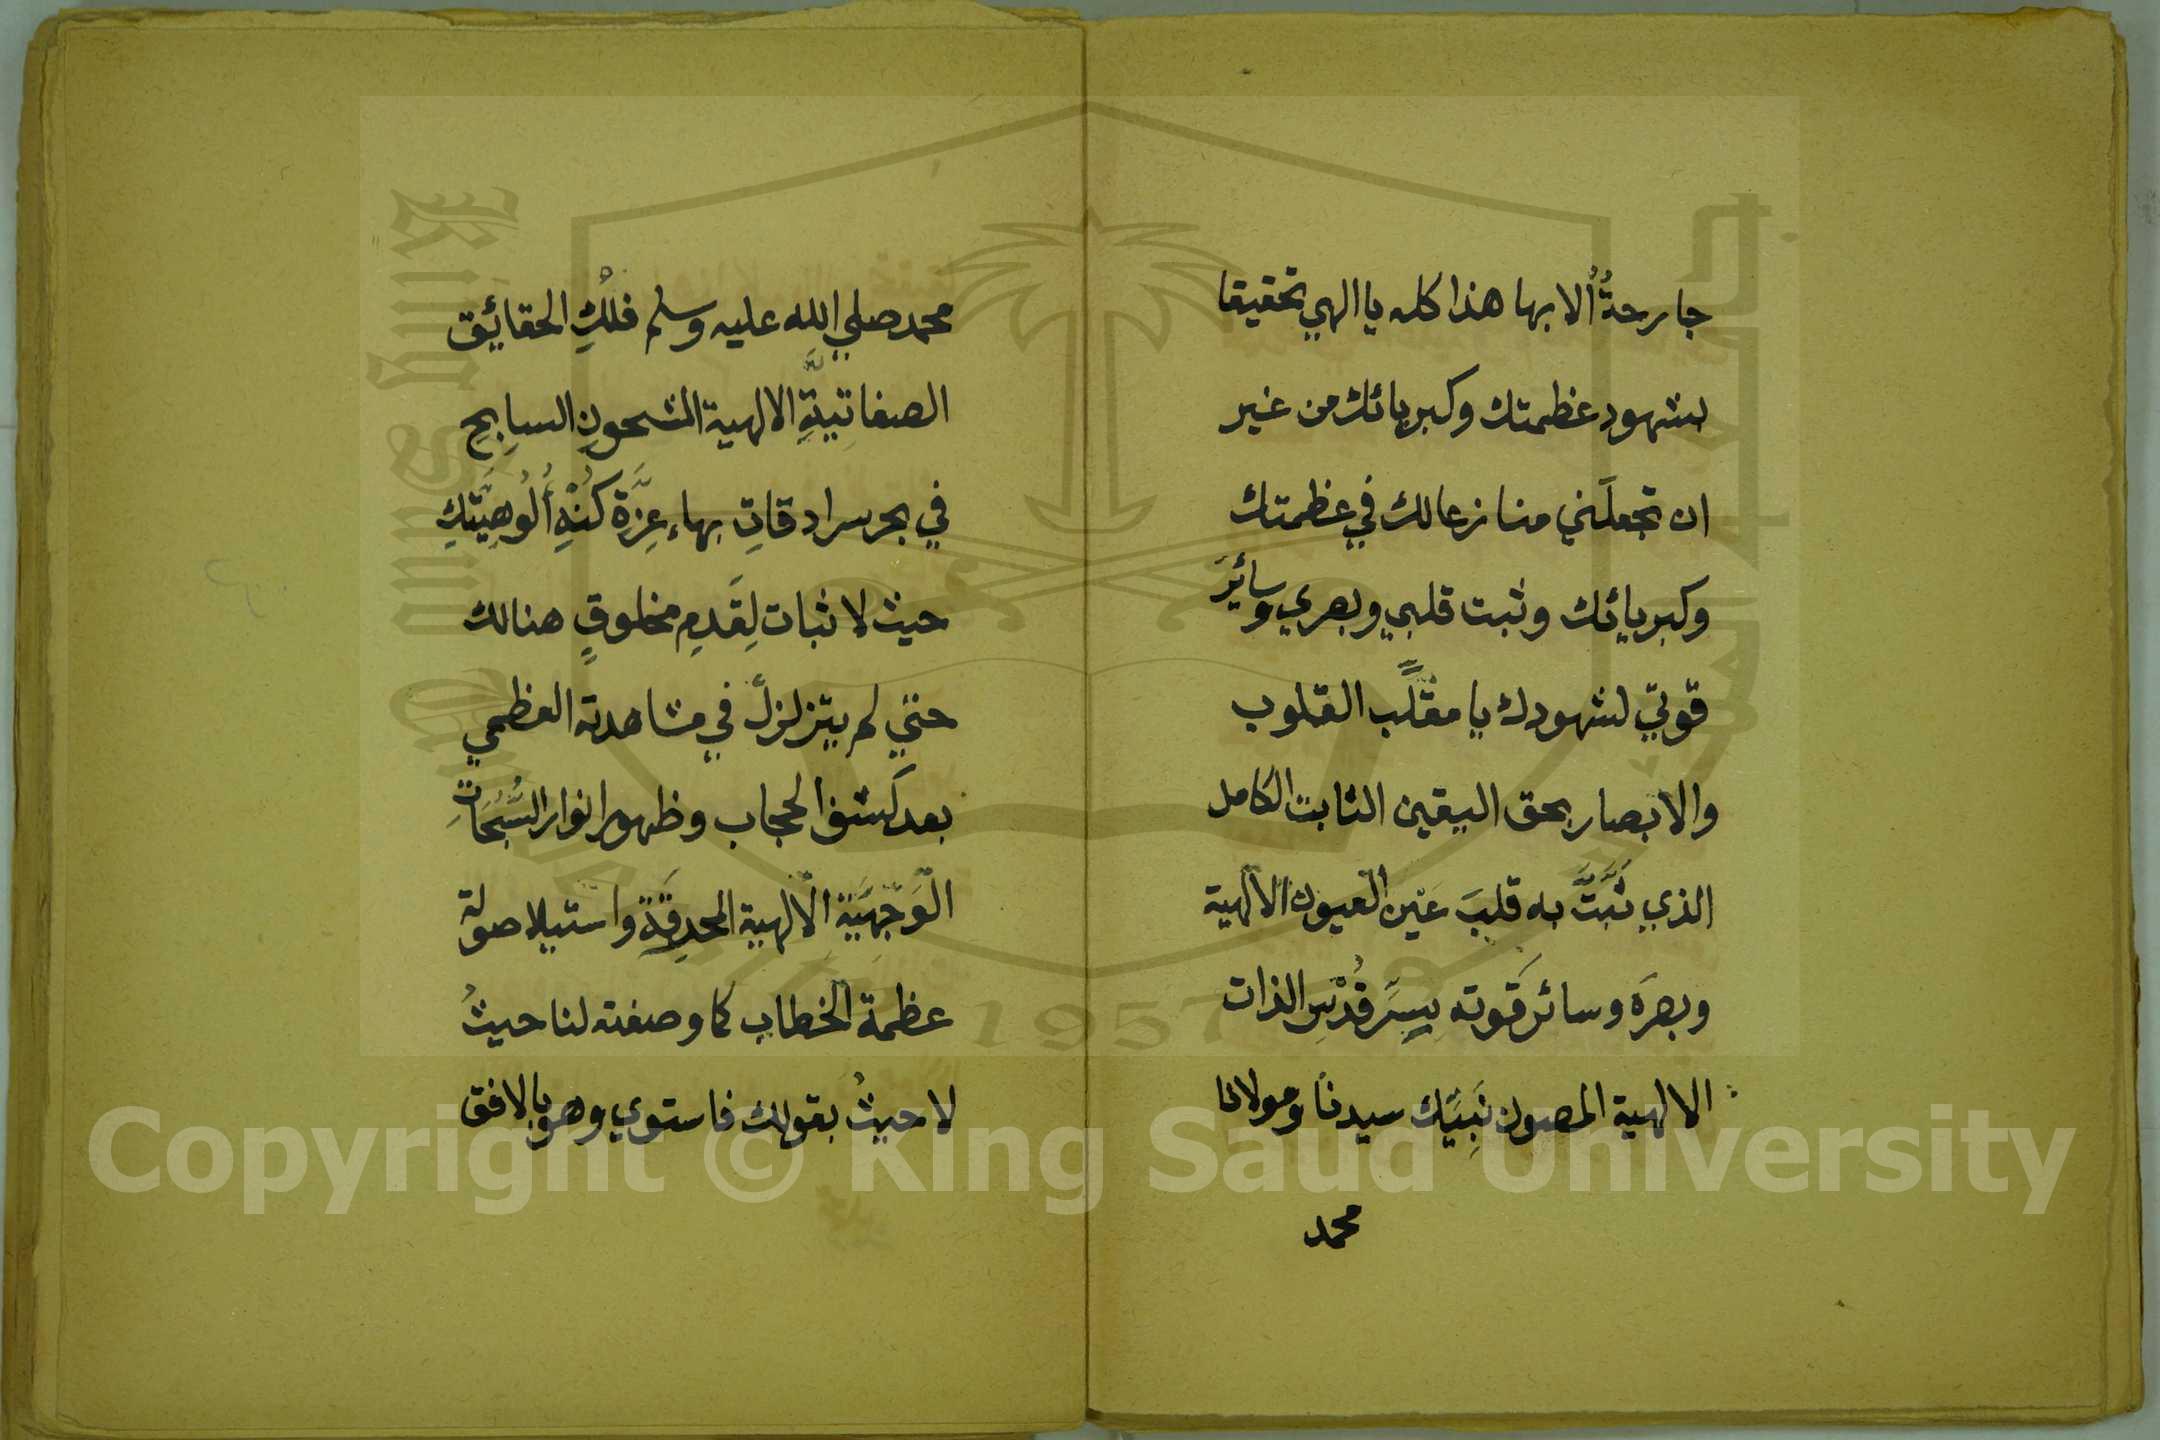 جارحةٌ ألا بها هذا كله يا الهي تحقيقا
لشهود عظمتك وكبريائك من غير
ان تجعلَني منازعا لك في عظمتك
وكبريائك وثبت قلبي وبصري وسائرَ
قوتي لشهودك يا مقلِّب القلوب
والابصار بحق اليقين الثابت الكامل
الذي ثبَّتَّ به قلبَ عَين العيون الالهية
وبصرَه وسائر قوته بِسِرِّ قُدْسِ الذات
الالهية المصون نَبيِّك سيدنا ومولانا
محمد
محمد صلي الله عليه وسلم فلْكِ الحقائق
الصفاتيَّةِ الالهية المشحون السابحِ
في بحر سرادقاتِ بهاء عِزَّة كُنْهِ أُلُوهِيَّتِكِ
حيث لا ثبات لِقَدمِ مخلوقٍ هنالك
حتي لم يتزلزلْ في مشاهدته العظمي
بعد كشف الحجاب وظهور انوار السُّبُحَاتِ
الْوَجْهِيَّةِ الالهية المحدِقَة واستيلا صولة
عظمة الخطاب كما وصفته لنا حيثُ
لا حيثُ بقولك فاستوي وهو بالافق
King Saud University
1957
Copyright © King Saud University